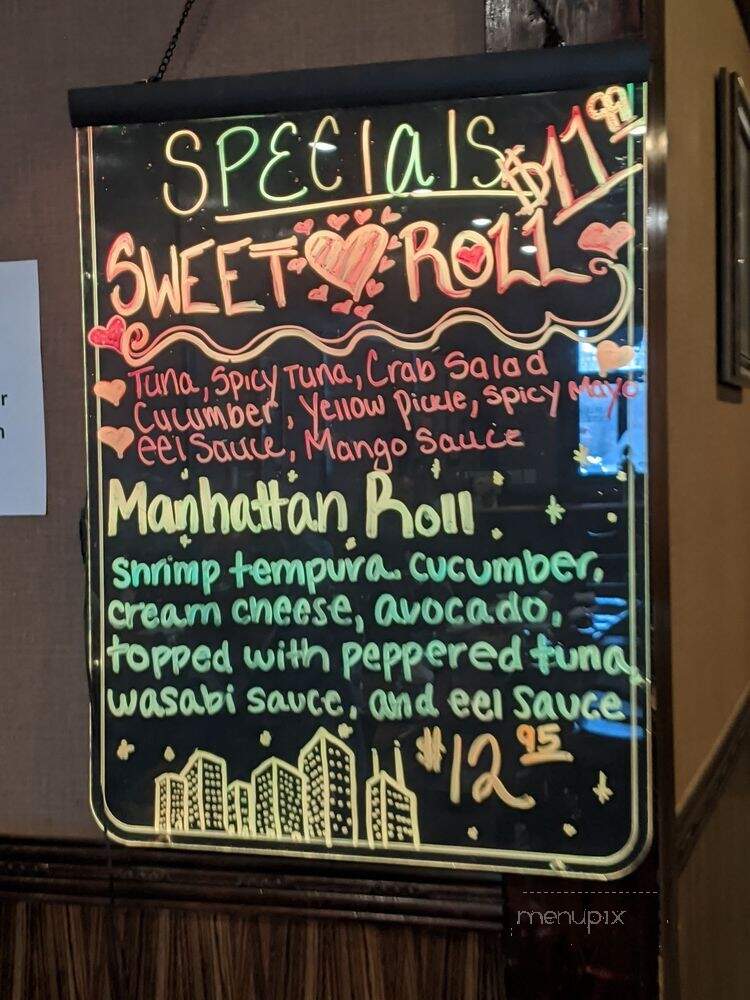 SPECIalS $11.99
SWEET ROLL
Tuna, Spicy Tuna, Crab Salad
Cucumber, Yellow Pickle, Spicy Mayo
eel Sauce, Mango Sauce
Manhattan Roll
shrimp tempura cucumber,
cream cheese, avocado,
topped with peppered tuna,
wasabi sauce, and eel sauce
$12.95
r
n
menupix